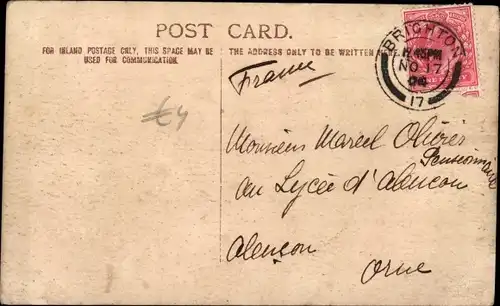 POST CARD.
FOR INLAND POSTAGE ONLY, THIS SPACE MAY BE
USED FOR COMMUNICATION.
THE ADDRESS ONLY TO BE WRITTEN
BRIGHTON
NO 17
17
France
£4
Monsieur Marcel Olivier
Pensionnaire
au Lycée d'alencon
alençon
Orne